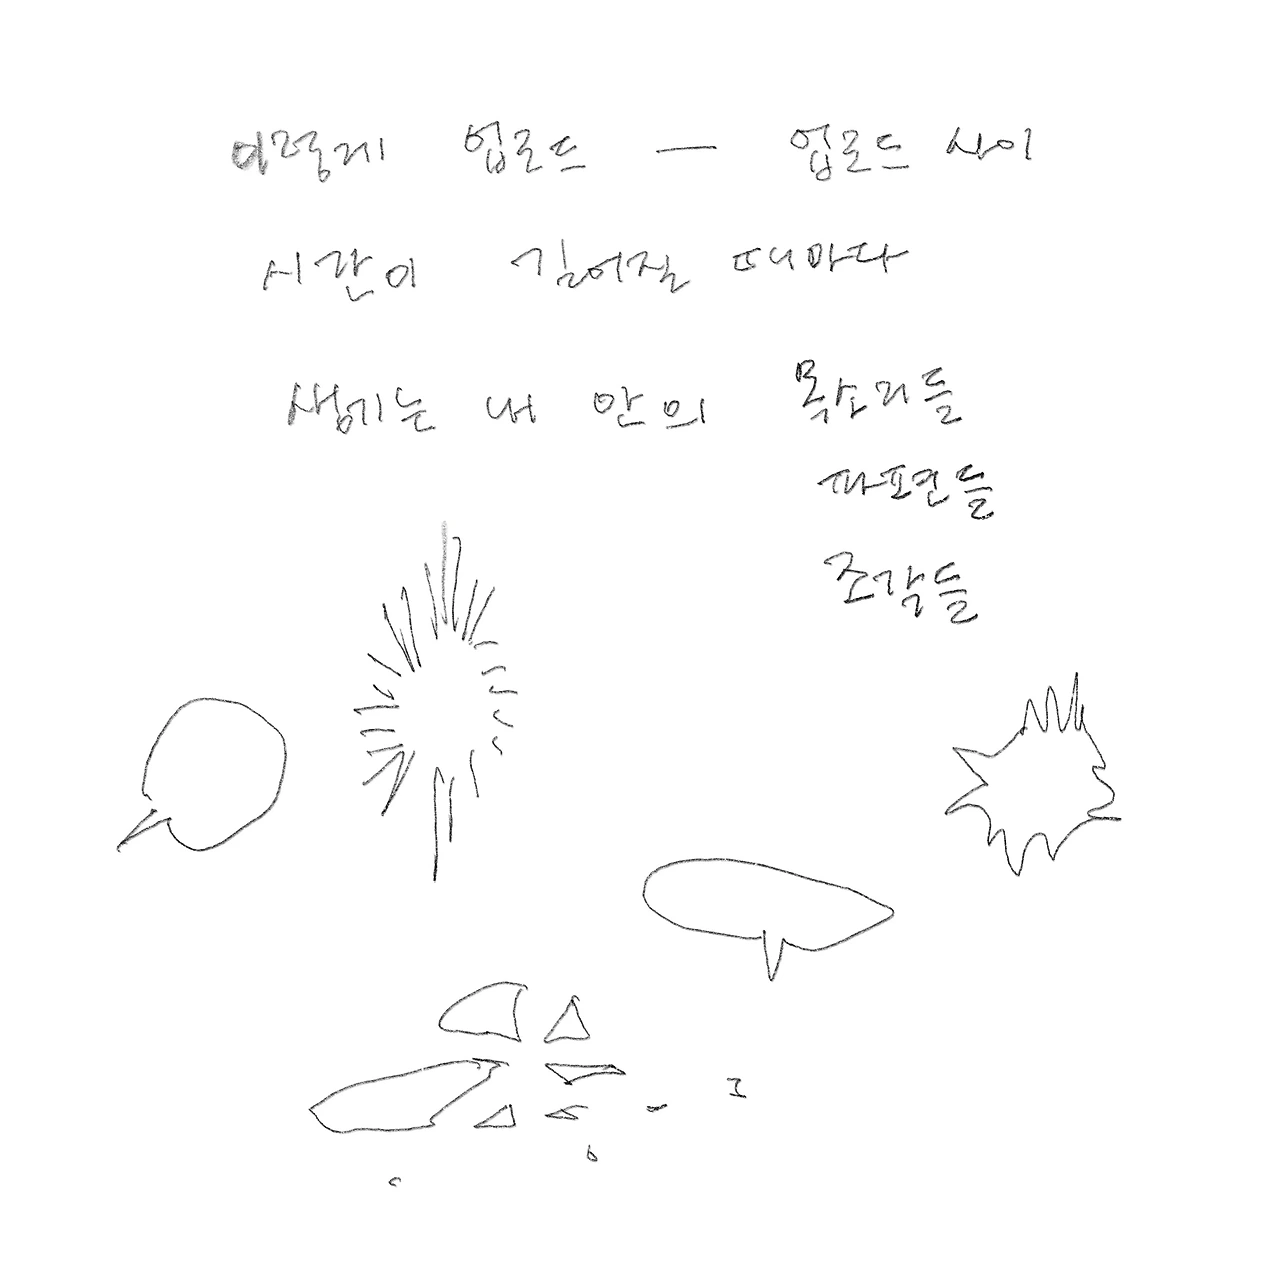 이렇게 업로드 — 업로드 사이
시간이 길어질 때마다
생기는 내 안의 목소리들
파편들
조각들